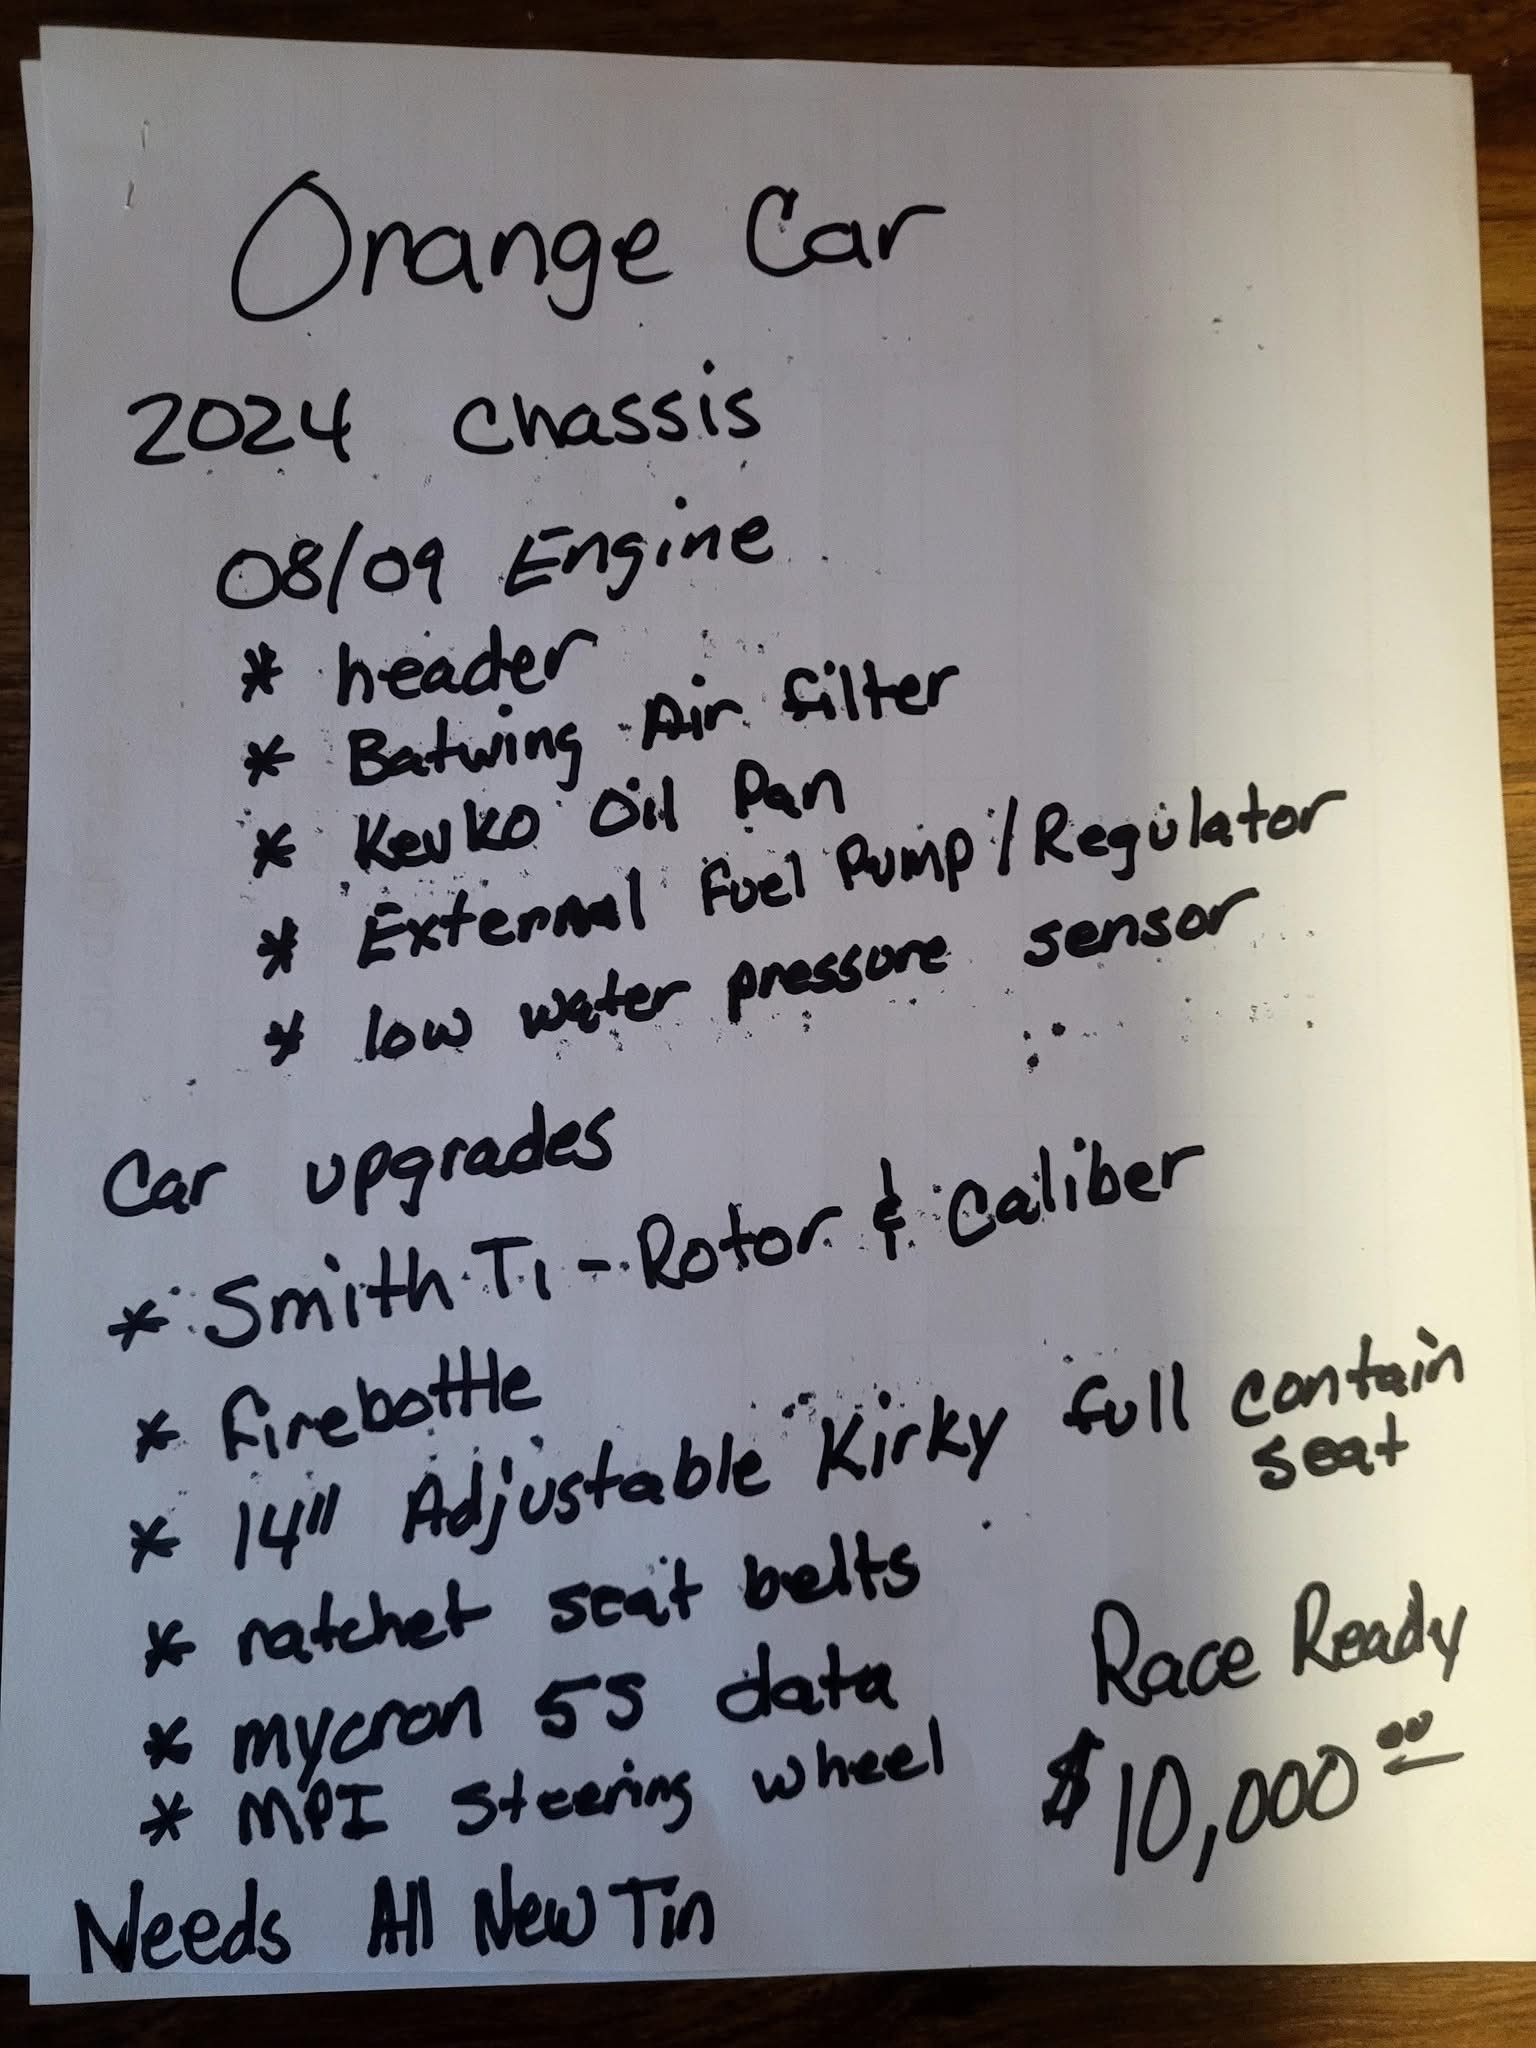 Orange Car
2024 Chassis
08/09 Engine
* header
* Batwing Air filter
* Kevko Oil Pan
* External Fuel Pump/Regulator
* low water pressure sensor
Car upgrades
* Smith Ti - Rotor & Caliber
* firebottle
* 14" Adjustable Kirky full contain
seat
* ratchet seat belts
* mycron 5S data
* MPI steering wheel
Race Ready
$10,000.00
Needs All New Tin